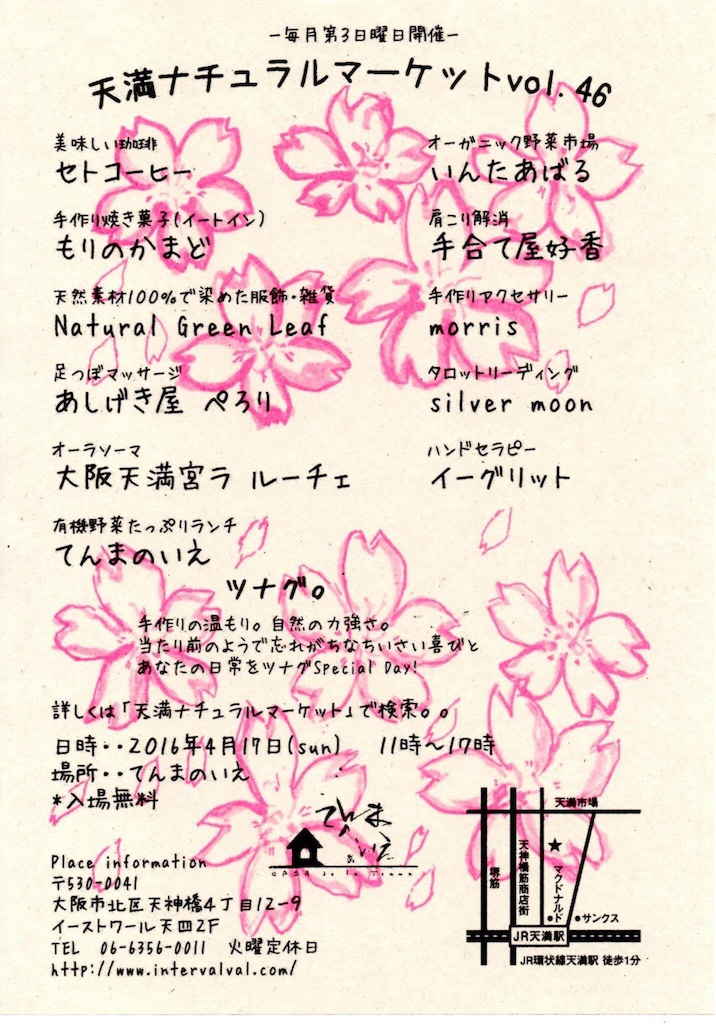 －毎月第3日曜日開催－
天満ナチュラルマーケットvol.46
美味しい珈琲
セトコーヒー
オーガニック野菜市場
いんたあばる
手作り焼き菓子(イートイン)
もりのかまど
肩こり解消
手合て屋好香
天然素材100%で染めた服飾・雑貨
Natural Green Leaf
手作りアクセサリー
morris
足つぼマッサージ
あしげき屋 ぺろり
タロットリーディング
silver moon
オーラソーマ
大阪天満宮ラ ルーチェ
ハンドセラピー
イーグリット
有機野菜たっぷりランチ
てんまのいえ
ツナグ。
手作りの温もり。自然の力強さ。
当たり前のようで忘れがちなちいさい喜びと
あなたの日常をツナグSpecial Day!
詳しくは「天満ナチュラルマーケット」で検索。。
日時・・2016年4月17日(sun) 11時～17時
場所・・てんまのいえ
*入場無料
てんま
のいえ
CASA de la Tenma
Place information
〒530-0041
大阪市北区天神橋4丁目12-9
イーストワール天四2F
TEL 06-6356-0011 火曜定休日
http://www.intervalval.com/
天満市場
堺筋
天神橋筋商店街
★
マクドナルド
サンクス
JR天満駅
JR環状線天満駅 徒歩1分